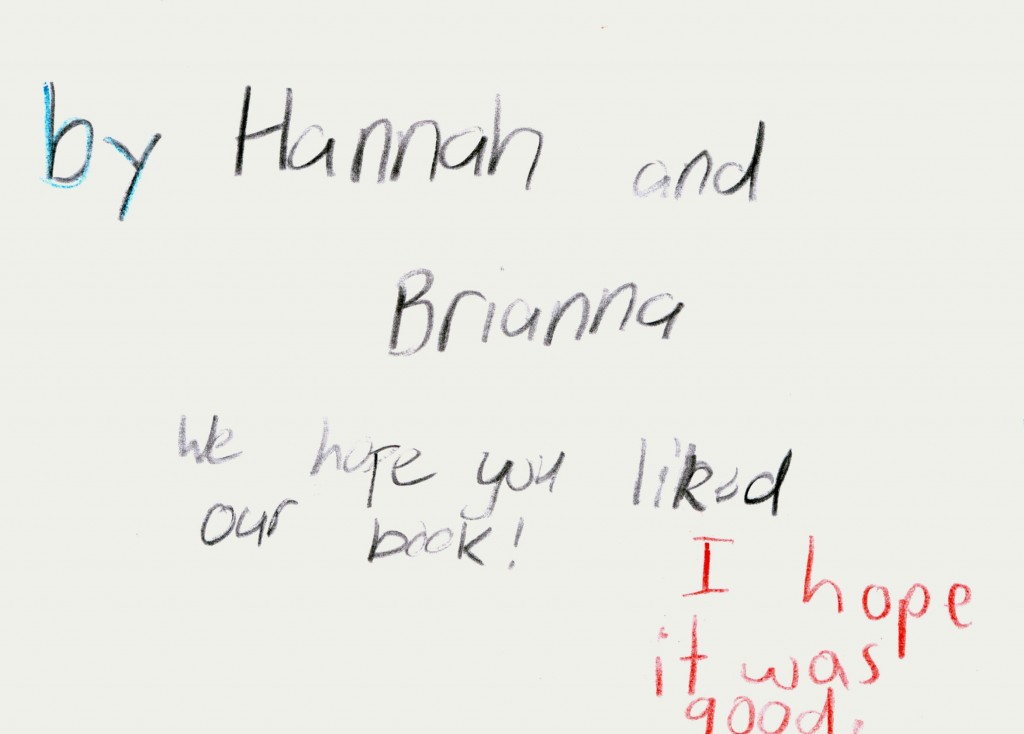 by Hannah and
Brianna
We hope you liked
our book!
I hope
it was
good.